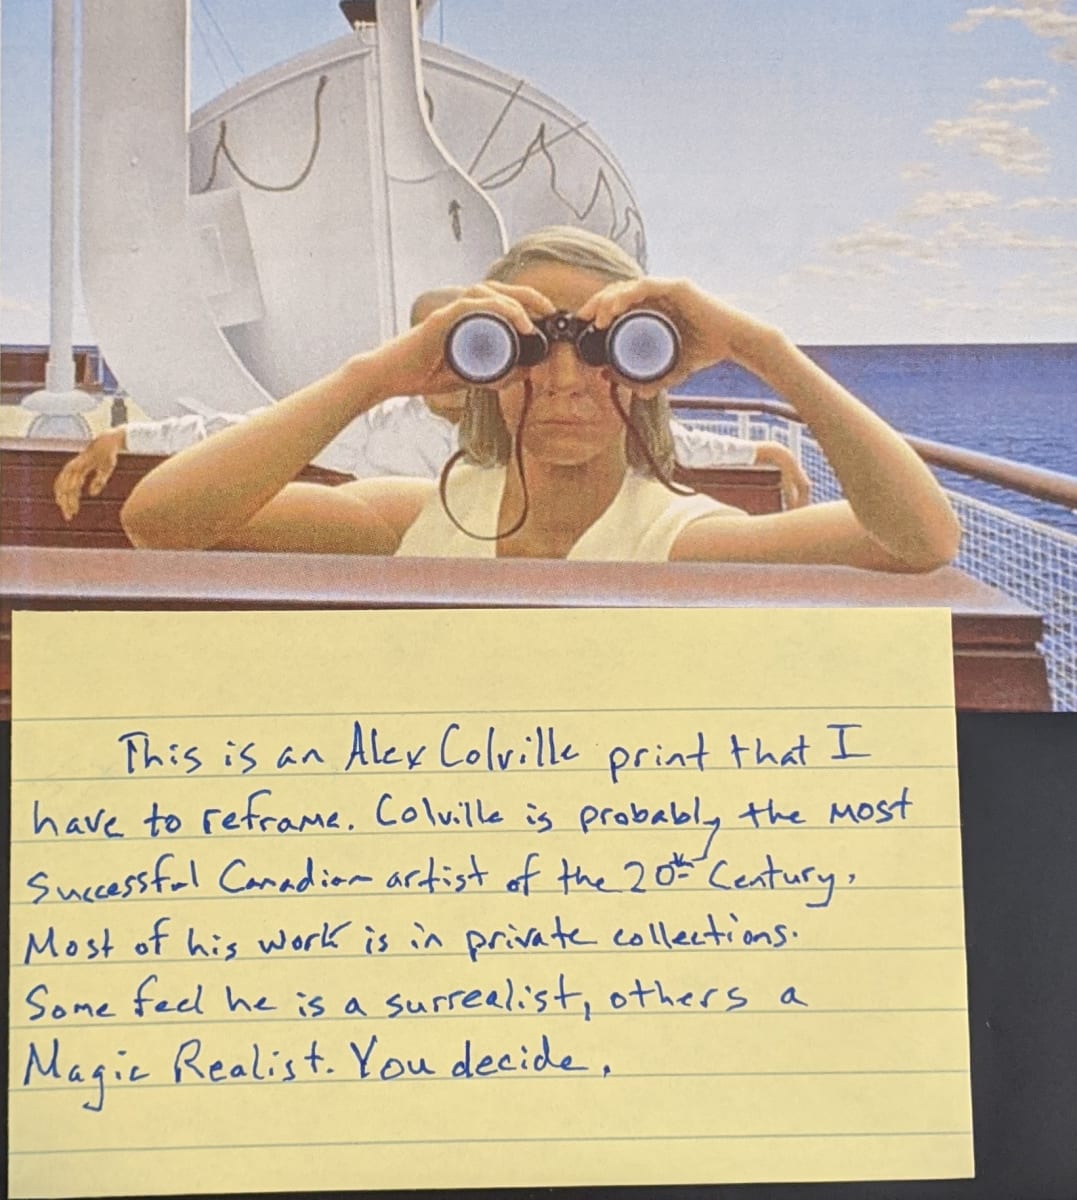 This is an Alex Colville print that I
have to reframe. Colville is probably the most
Successful Canadian artist of the 20th Century.
Most of his work is in private collections.
Some feel he is a surrealist, others a
Magic Realist. You decide.